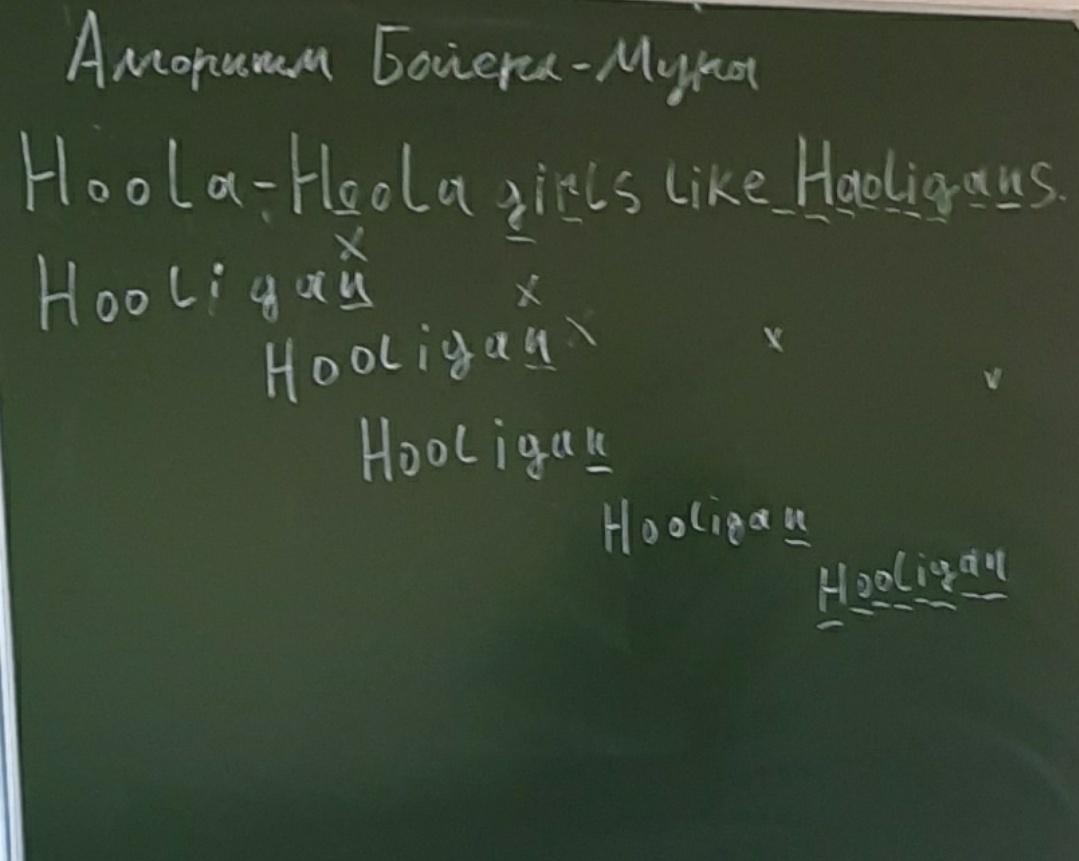 Алгоритм Бойера-Мура
Hoola-Hoola girls like Hooligans.
Hooligan
Hooligan
Hooligan
Hooligan
Hooligan